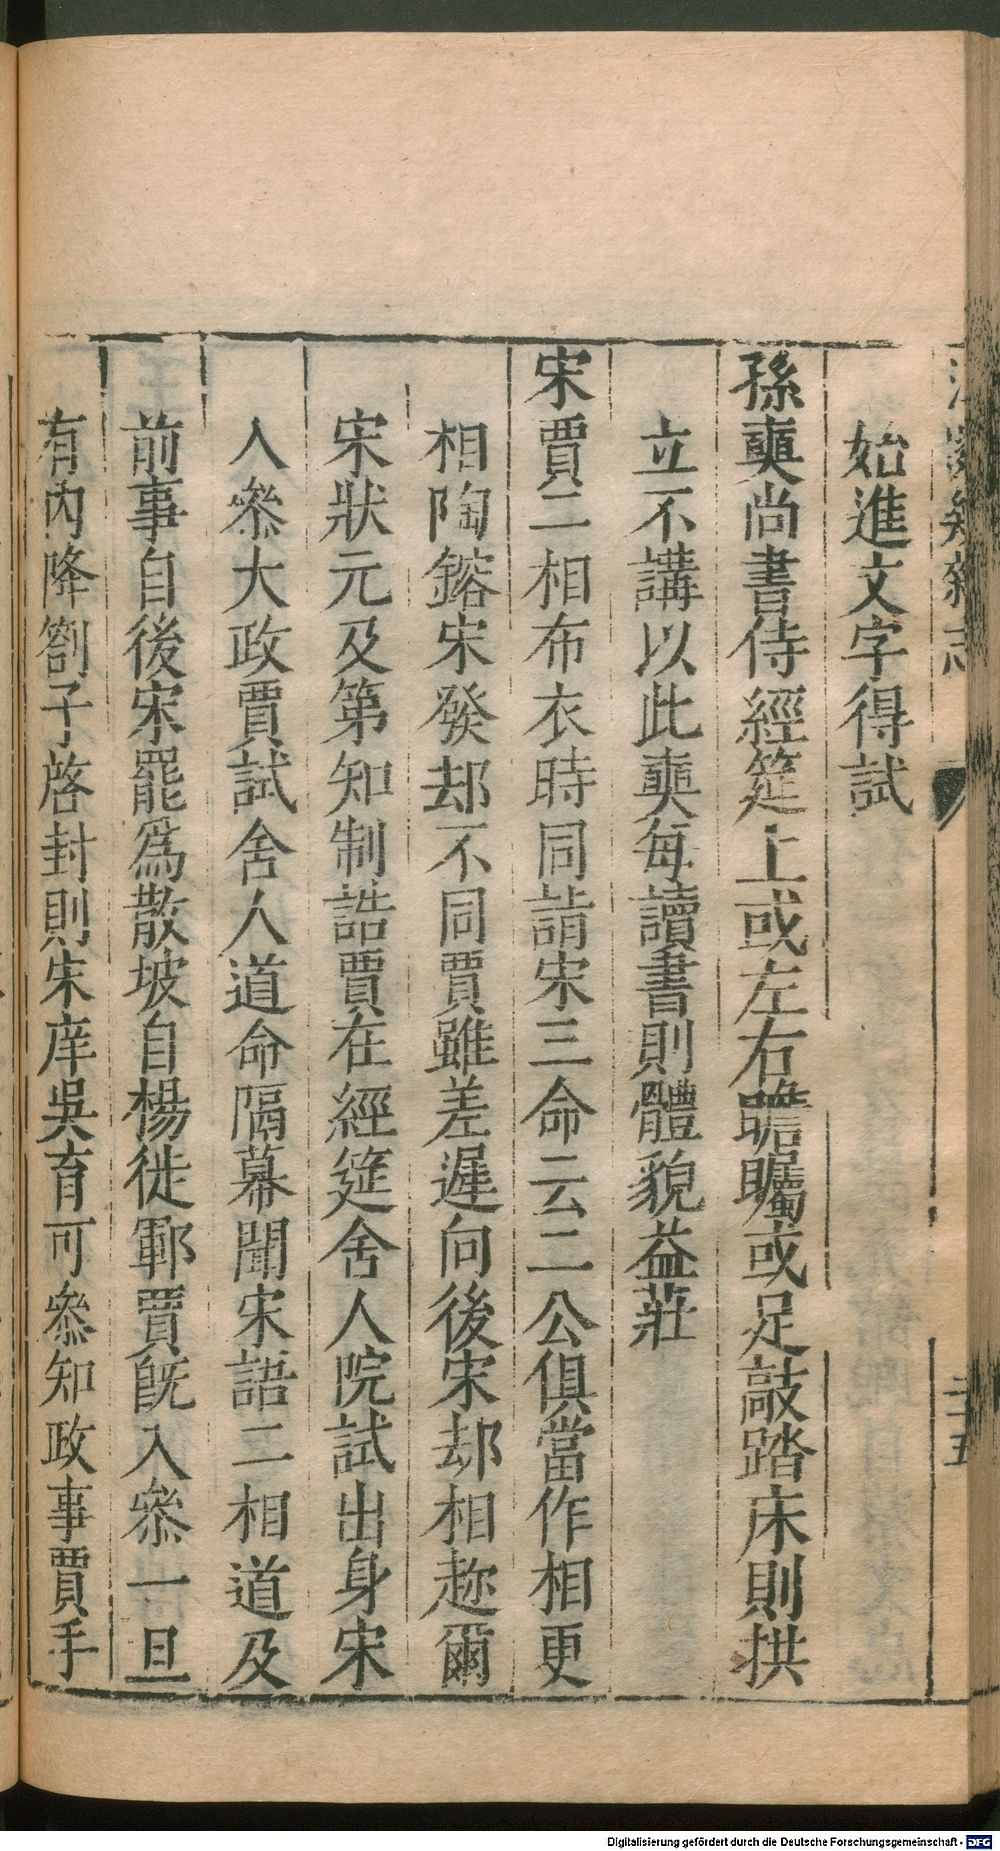 始進文字得試
孫奭尚書侍經筵上或左右瞻矚或足敲踏床則拱
立不講以此奭每讀書則體貌益莊
宋賈二相布衣時同詣宋三命云二公俱當作相更
相陶鎔宋發却不同賈雖差遲向後宋却相趂爾
宋狀元及第知制誥賈在經筵舍人院試出身宋
入叅大政賈試舍人道命隔幕聞宋語二相道及
前事自後宋罷爲散坡自楊徙鄆賈旣入叅一旦
有內降劄子啓封則宋庠吳育可叅知政事賈手
雜志
二十五
Digitalisierung gefördert durch die Deutsche Forschungsgemeinschaft - DFG